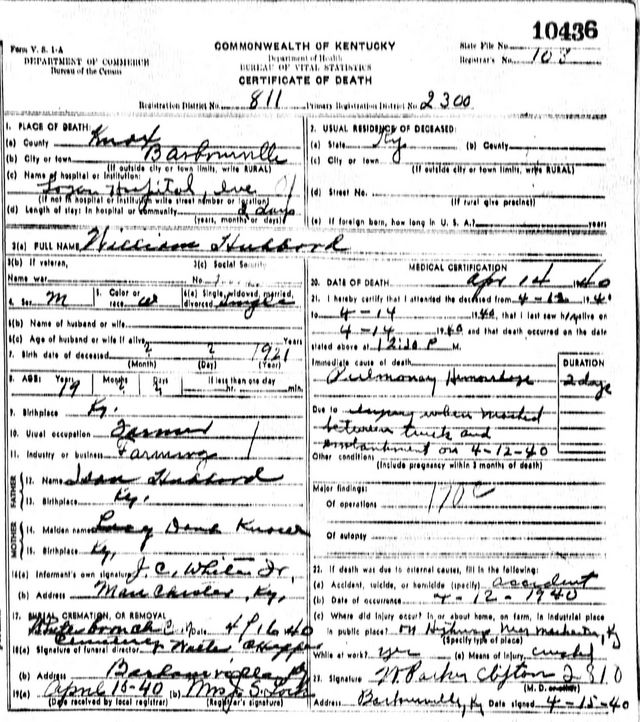 10436
Form V. S. 1-A
DEPARTMENT OF COMMERCE
Bureau of the Census
COMMONWEALTH OF KENTUCKY
Department of Health
BUREAU OF VITAL STATISTICS
CERTIFICATE OF DEATH
State File No.
Registrar's No. 103
Registration District No. 811 Primary Registration District No. 2300
1. PLACE OF DEATH:
(a) County Knox
(b) City or town Barbourville
(If outside city or town limits, write RURAL)
(c) Name of hospital or institution:
Logan Hospital, Inc
(If not in hospital or institution write street number or location)
(d) Length of stay: In hospital or community 2 days
(years, months or days)
2. USUAL RESIDENCE OF DECEASED:
(a) State Ky. (b) County
(c) City or town
(If outside city or town limits, write RURAL)
(d) Street No.
(If rural give precinct)
(e) If foreign born, how long in U. S. A.? years
3(a) FULL NAME William Hubbord
3(b) If veteran,
Name war
3(c) Social Security
No.
4. Sex M
5. Color or
race w
6(a) Single, widowed, married,
divorced Single
6(b) Name of husband or wife
6(c) Age of husband or wife if alive Years
7. Birth date of deceased 2 2 1921
(Month) (Day) (Year)
8. AGE: Years 19 Months 2 Days
If less than one day
hr. min.
9. Birthplace Ky.
10. Usual occupation Farmer
11. Industry or business Farming
FATHER
12. Name Hubbord
13. Birthplace Ky.
MOTHER
14. Maiden name Lucy
15. Birthplace Ky,
16(a) Informant's own signature J. C. White Jr,
(b) Address Manchester, Ky.
17. BURIAL, CREMATION, OR REMOVAL
Date 4/16 40
18(a) Signature of funeral director
(b) Address Barbourville Ky
19(a) April 15-40 (b) Mrs.
(Date received by local registrar) (Registrar's signature)
MEDICAL CERTIFICATION
20. DATE OF DEATH Apr 14 40
21. I hereby certify that I attended the deceased from 4-12, 1940
to 4-14 1940, that I last saw him alive on
4-14 1940 and that death occurred on the date
stated above at 12:20 P M.
Immediate cause of death
Pulmonary Hemorrhage
DURATION
2 days
Due to injury when mashed
between truck and
embankment on 4-12-40
Other conditions
(Include pregnancy within 3 months of death)
Major findings:
Of operations 170c
Of autopsy
22. If death was due to external causes, fill in the following:
(a) Accident, suicide, or homicide (specify) accident
(b) Date of occurrence 4-12-1940
(c) Where did injury occur? In or about home, on farm, in industrial place
in public place? on Highway near Manchester, Ky
(Specify type of place)
While at work? yes (e) Means of injury crushed
23. Signature W Parker Clifton
(M. D. or other)
Address Barbourville, Ky Date signed 4-15-40